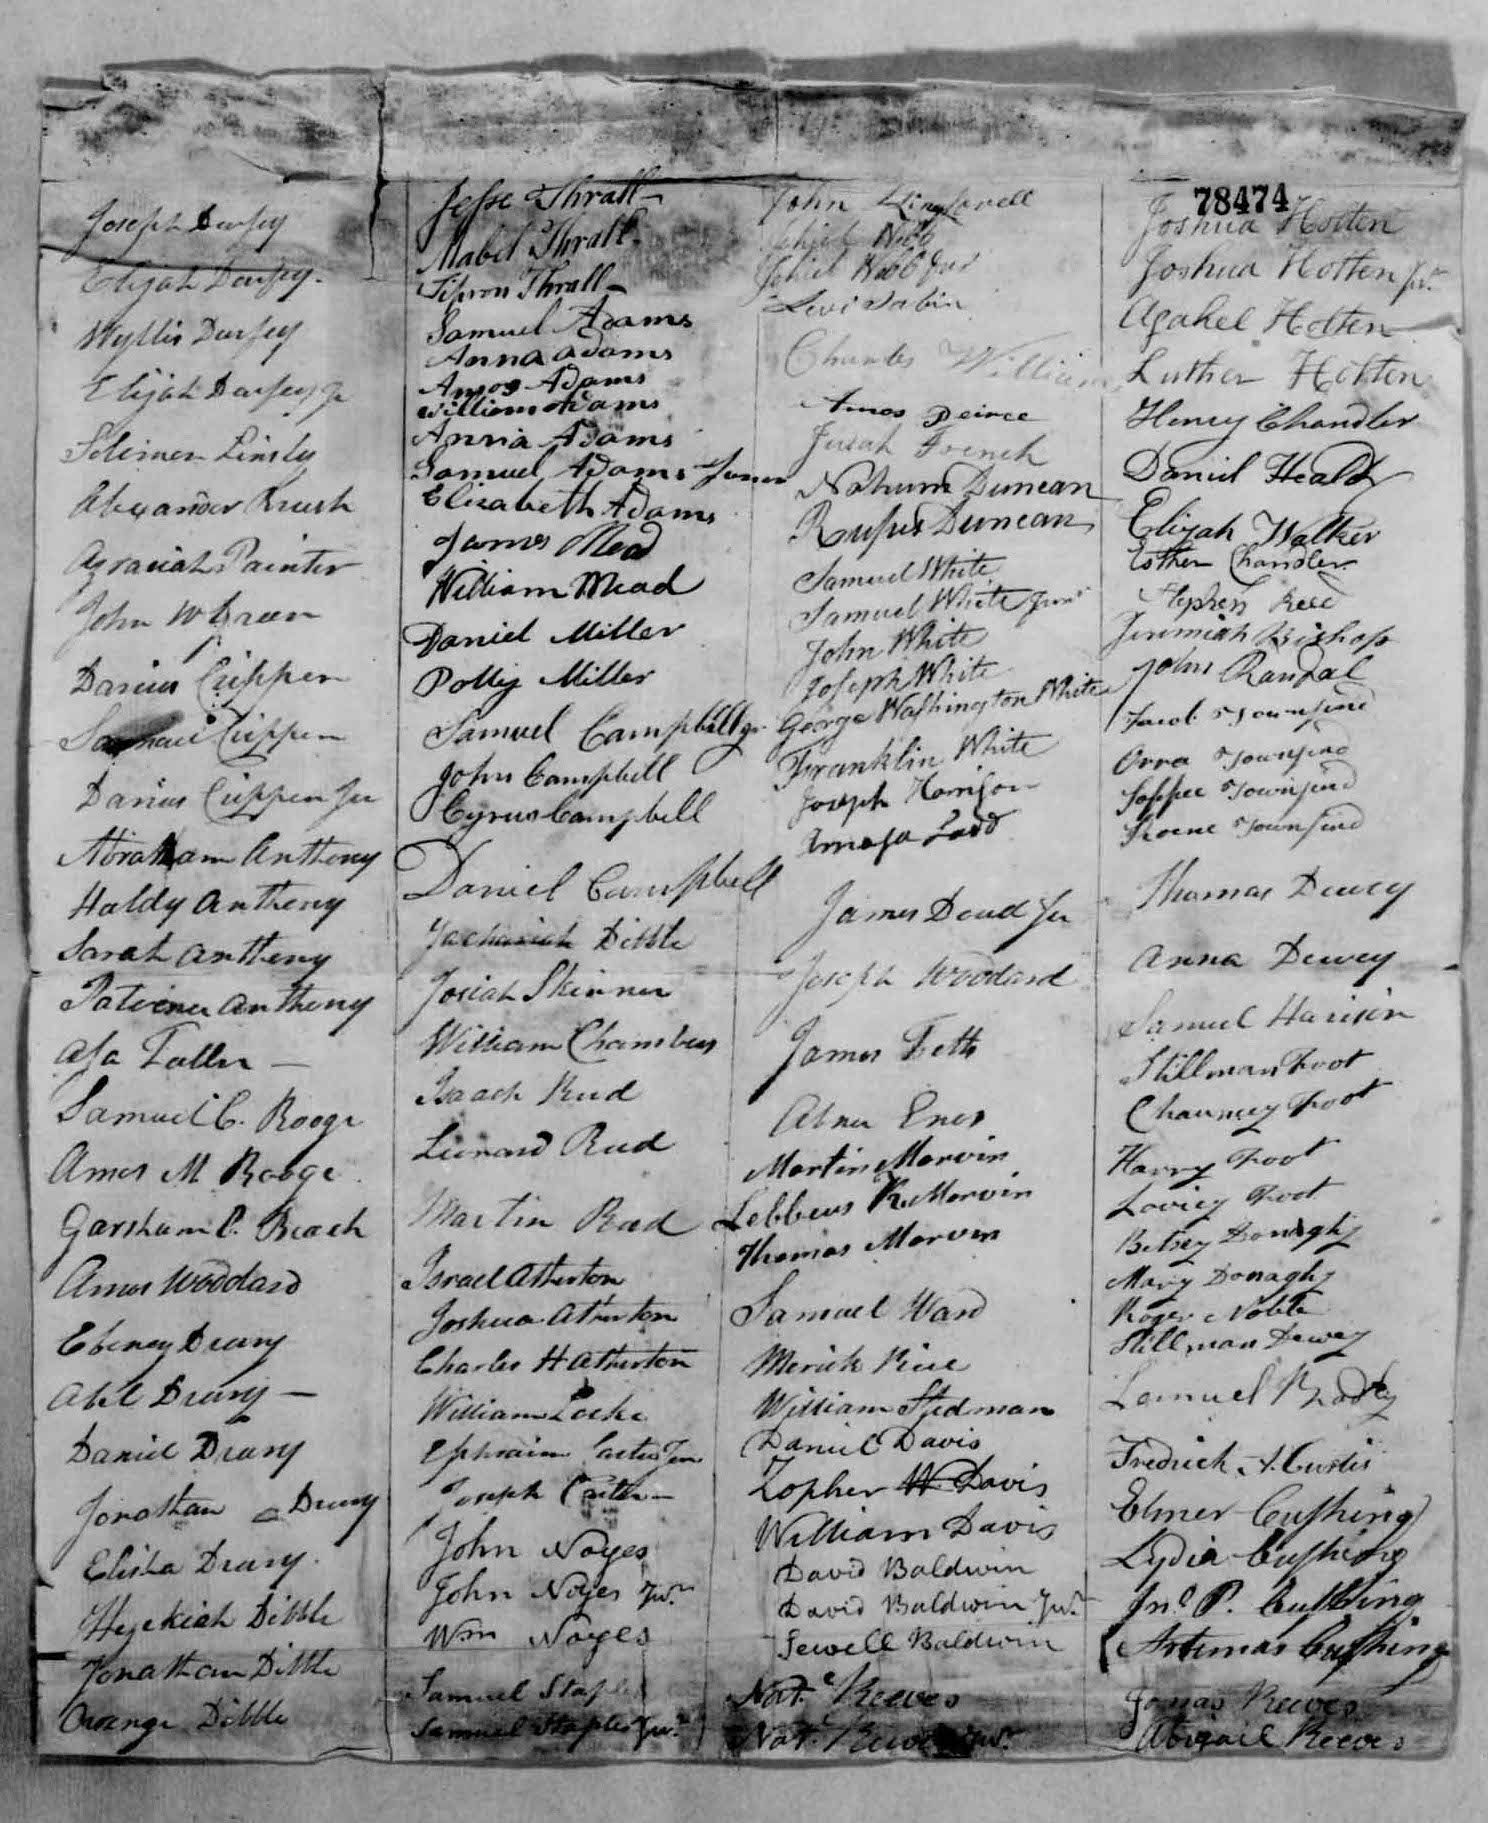 78474
Joseph Durfey
Elijah Durfey
Wyllis Durfey
Elijah Durfey Jr
Linsly
Alexander Brush
Azariah Painter
John W Green
Darius Crippen
Samuel Crippen
Darius Crippen Jur
Abraham Anthony
Haldy Anthony
Sarah Anthony
Anthony
Asa Fuller
Samuel C. Booge
Amos M Booge
Garsham C. Beach
Amos Woodard
Ebenezr Drury
Abel Drury
Daniel Drury
Jonathan Drury
Elisha Drury
Hezekiah Dibble
Jonathan Dibble
Orange Dibble
Jesse Thrall
Mabel Thrall
Thrall
Samuel Adams
Anna Adams
Amos Adams
William Adams
Annia Adams
Samuel Adams Junor
Elizabeth Adams
James Mead
William Mead
Daniel Miller
Polly Miller
Samuel Campbell Jr
John Campbell
Cyrus Campbell
Daniel Campbell
Zachariah Dibble
Josiah Skinner
William Chambers
Isaach Reed
Leonard Reed
Martin Reed
Israel Atherton
Joshua Atherton
Charles H Atherton
William Locke
Ephraim Carter Jun
Joseph Carter
John Noyes
John Noyes Jur.
Wm Noyes
Samuel Staples
Samuel Staples Jur.
John Kingsarell
Jehiel Webb
Jehiel Webb Jur
Levi Sabin
Charles William
Amos Peirce
French
Nahum Duncan
Rufus Duncan
Samuel White
Samuel White Junr
John White
Joseph White
George Washington White
Franklin White
Joseph Harrison
Amasa Ladd
James Doud Jur
Joseph Woodard
James Fetts
Abner Enos
Martin Marvin
Lebbeus R Marvin
Thomas Marvin
Samuel Ward
Merick Rice
William Stedman
Daniel Davis
Zopher W Davis
William Davis
David Baldwin
David Baldwin Jur.
Sewell Baldwin
Nat. Reeves
Nat. Reeves Jur.
Joshua Hotten
Joshua Hotten Jr.
Asahel Hotten
Luther Hotten
Henry Chandler
Daniel Heald
Elijah Walker
Esther Chandler
Stephen Reed
Jeremiah Bishop
John Randal
Jacob Townsend
Orra Townsend
Townsend
Townsend
Thomas Dewey
Anna Dewey
Samuel Harison
Stillman Foot
Chauncey Foot
Harry Foot
Lovicy Foot
Betsey Donaghy
Mary Donaghy
Roger Noble
Stillman Dewey
Lemuel Bradley
Fredrick A. Curtis
Elmer Cushing
Lydia Cushing
Jno. P. Cushing
Artemas Cushing
Jonas Reeves
Abigail Reeves